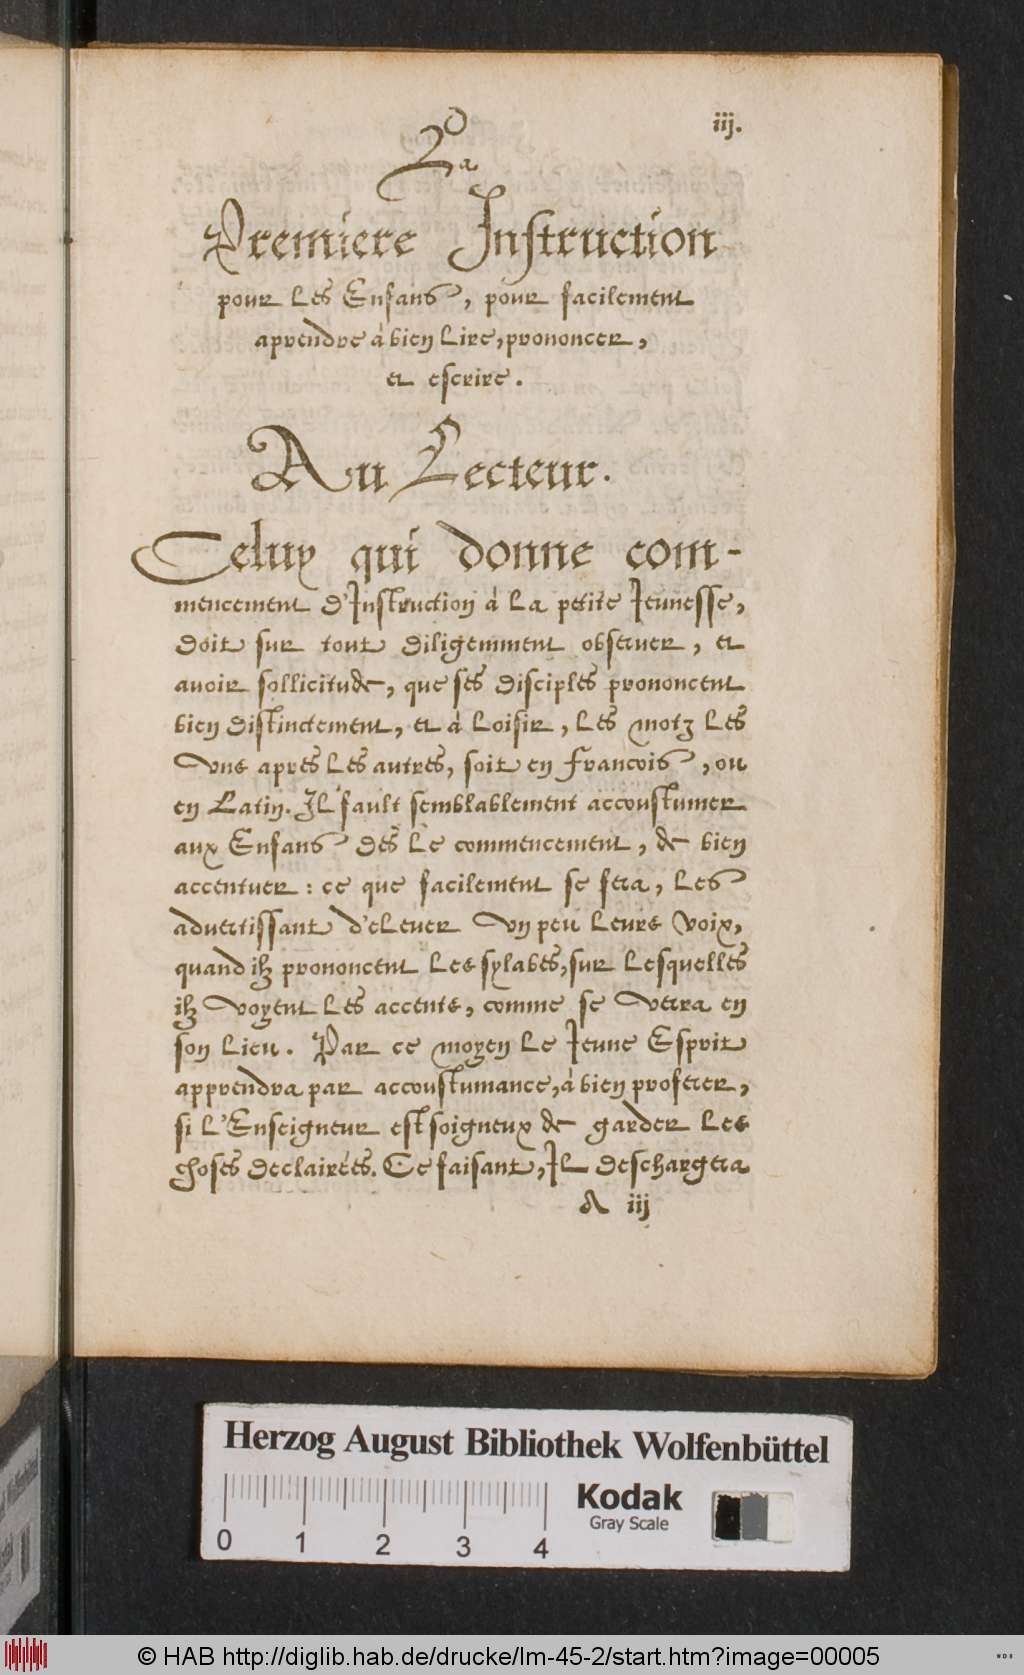 iij.
La
Premiere Instruction
pour les Enfans, pour facilement
aprendre à bien lire, prononcer,
et escrire.
Au Lecteur.
Celuy qui donne com-
mencement d'Instruction à la petite Jeunesse,
doit sur tout diligemment observer, et
avoir sollicitude, que ses disciples prononcent
bien distinctement, et à loisir, les motz les
uns apres les autres, soit en Francois, ou
en Latin. Il fault semblablement accoustumer
aux Enfans dès le commencement, de bien
accentuer : ce que facilement se fera, les
advertissant d'elever un peu leurs voix,
quand ilz prononcent les sylabes, sur lesquelles
ilz voyent les accents, comme se verra en
son lieu. Par ce moyen le Jeune Esprit
apprendra par accoustumance, à bien proferer,
si l'Enseigneur est soigneux de garder les
choses declairées. Ce faisant, Il deschargera
A iij
Herzog August Bibliothek Wolfenbüttel
Kodak
Gray Scale
0 1 2 3 4
© HAB http://diglib.hab.de/drucke/lm-45-2/start.htm?image=00005